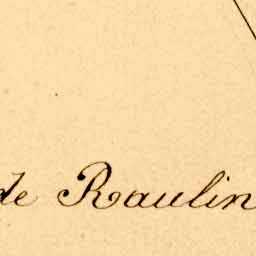 de Raulin